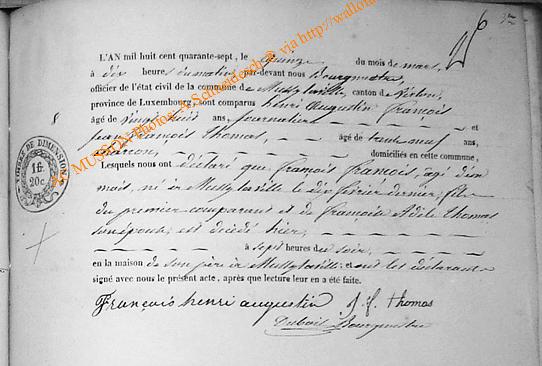 26 37
L'AN mil huit cent quarante-sept, le quinze du mois de mars,
à dix heures du matin par-devant nous Bourgmestre,
officier de l'état civil de la commune de Mussy la ville, canton de Virton,
province de Luxembourg, sont comparus henri augustin françois
âgé de vingt huit ans, journalier et
jean françois thomas, âgé de trente neuf ans,
charron, domiciliés en cette commune,
Lesquels nous ont déclaré que françois françois, agé d'un
mois, né à Mussy la ville le dix février dernier, fils
du premier comparant et de françoise Adèle thomas
son épouse, est décédé hier,
à sept heures du soir,
en la maison de son père à Mussy la ville; et ont les déclarants
signé avec nous le présent acte, après que lecture leur en a été faite.
François henri augustin J. f. thomas
Dubois Bourgmestre
8
TIMBRE DE DIMENSION
1 fr.
20 c.
MUSSON Photos A.Schneidesch @ via http://wallonia